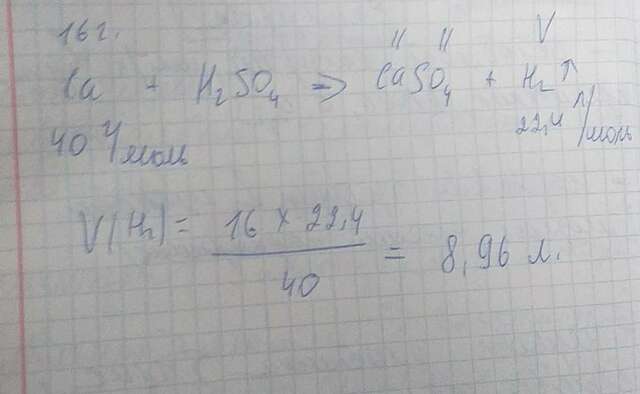 16 г. V
Ca + H₂SO₄ => CaSO₄ + H₂↑
40 г/моль 22,4 л/моль
V(H₂) = 16 × 22,4 / 40 = 8,96 л.